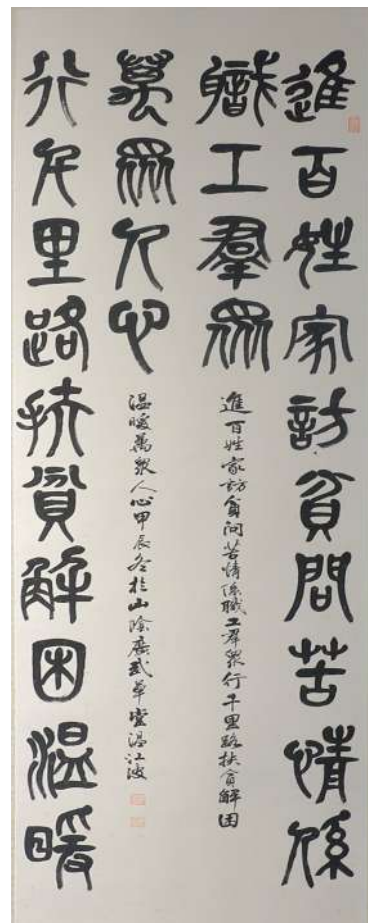 進百姓家訪貧問苦情係
職工羣眾
行千里路扶貧解困溫暖
萬眾人心
進百姓家訪貧問苦情係職工羣眾行千里路扶貧解困
温暖萬眾人心甲辰冬於山陰廣武草堂温江波